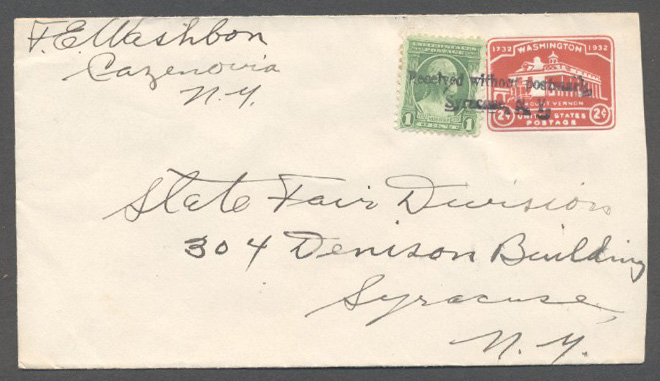 F. E. Washbon
Cazenovia
N.Y.
UNITED STATES
POSTAGE
1 1
1732 WASHINGTON 1932
MOUNT VERNON
2¢ UNITED STATES 2¢
POSTAGE
Received without postmark
Syracuse, N. Y.
State Fair Division
304 Denison Building
Syracuse,
N. Y.